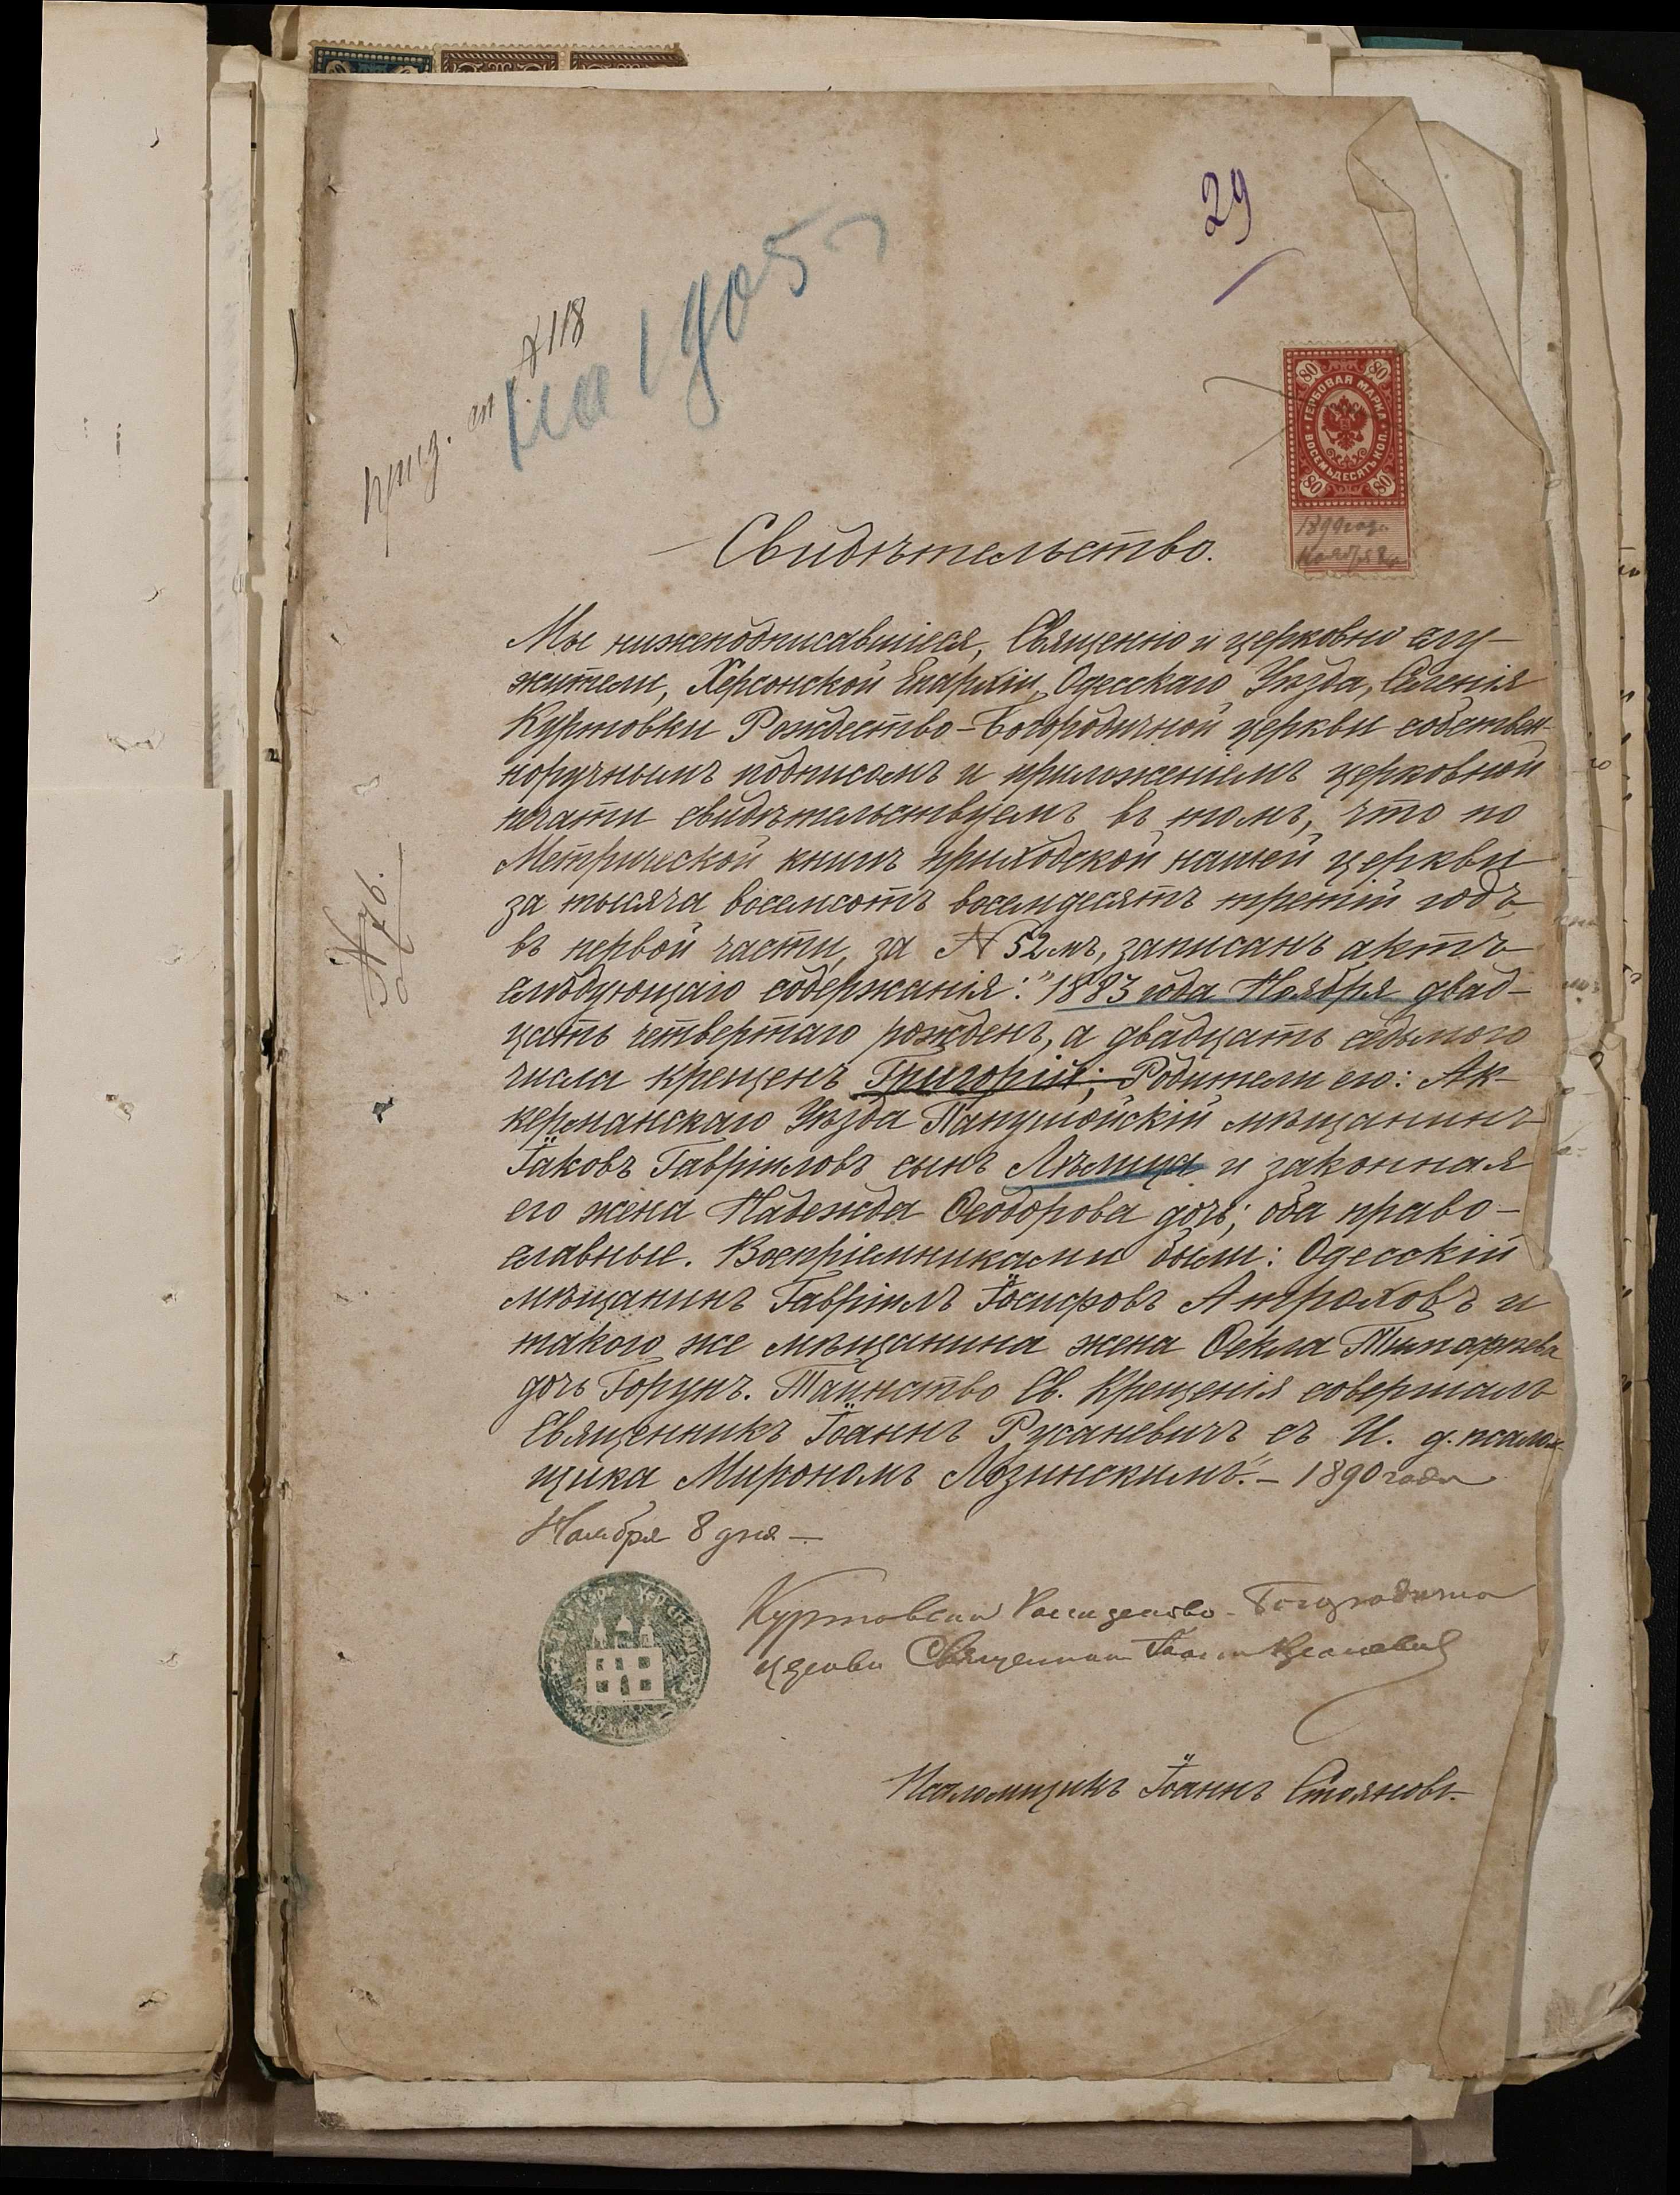 29
№ 118
на 1905
80 80
ГЕРБОВАЯ МАРКА
ВОСЕМЬДЕСЯТЪ КОП.
80 80
1890 года
Ноября 8 д.
Свидѣтельство.
Мы нижеподписавшіеся, Священно и церковно слу-
жители, Херсонской Епархіи, Одесскаго Уѣзда, Селенія
Куртовки Рождество-Богородичной церкви собствен-
норучнымъ подписомъ и приложеніемъ церковной
печати свидѣтельствуемъ въ томъ, что по
Метрической книгѣ приходской нашей церкви
за тысяча восемсотъ восемдесятъ третій годъ,
въ первой части, за № 52мъ, записанъ актъ
слѣдующаго содержанія: "1883 года Ноября двад-
цать четвертаго рожденъ, а двадцать седьмого
числа крещенъ Григорій; Родители его: Ак-
керманскаго Уѣзда Папушойскій мѣщанинъ
Іаковъ Гавріиловъ сынъ Лѣмица и законная
его жена Надежда Ѳеодорова дочь; оба право-
славные. Воспріемниками были: Одесскій
мѣщанинъ Гавріилъ Іосифовъ Атроховъ и
такого же мѣщанина жена Ѳекла
дочь Горунъ. Таинство Св. Крещенія совершалъ
Священникъ Іоаннъ Русаневичъ съ И. д. псалом-
щика Мирономъ Лозинскимъ". – 1890 года
Ноября 8 дня –
№ 76.
Куртовской Рождество-Богородично
церкви Священникъ Іоаннъ Русаневичъ
Псаломщикъ Іоаннъ Стояновъ.